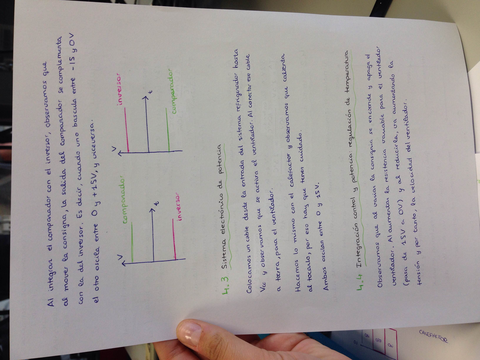 Al integrar el comparador con el inversor, observamos que
al mover la consigna, la salida del comparador se complementa
con la del inversor. Es decir, cuando uno bascula entre -15 y 0V
el otro oscila entre 0 y +15V, y viceversa.
V
comparador
t
inversor
V
inversor
t
comparador
4.3 Sistema electrónico de potencia
Colocamos un cable desde la entrada del sistema refrigerador hasta
y observamos que se activa el ventilador. Al conectar ese cable
a tierra, para el ventilador.
Hacemos lo mismo con el calefactor y observamos que calienta
al tocarlo, por eso hay que tener cuidado.
Ambos oscilan entre 0 y 15V.
4.4 Integración control y potencia regulación de temperatura
Observamos que al variar la consigna se enciende y apaga el
ventilador. Al aumentar la resistencia variable para el ventilador
(pasa de 15V a 0V) y al reducirla, va aumentando la
tensión y por tanto, la velocidad del ventilador.
CALEFACTOR